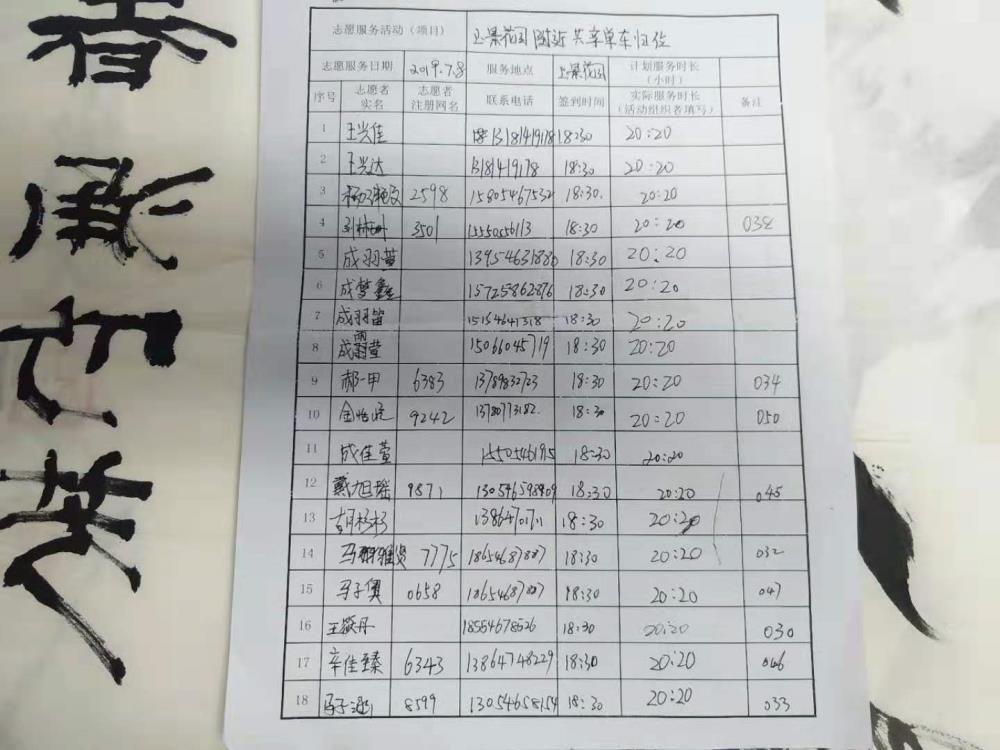 志愿服务活动（项目） 上景花园附近共享单车归位
志愿服务日期 2019.7.8 服务地点 上景花园 计划服务时长（小时）
序号 志愿者实名 志愿者注册网名 联系电话 签到时间 实际服务时长（活动组织者填写） 备注
1 王兴佳 13181419178 18:30 20:20
2 王兴达 13181419178 18:30 20:20
3 2598 15805467532 18:30. 20:20
4 3501 15550556113 18:30 20:20 038
5 成羽萱 13954631880 18:30 20:20
6 成梦鑫 15725862876 18:30 20:20
7 成羽笛 15154641318 18:30 20:20
8 成雨萱 15066045719 18:30 20:20
9 郝一甲 6383 13789832723 18:30 20:20 034
10 9242 13780773182. 18:30 20:20 050
11 成佳萱 1550546195 18:30 20:20
12 戴旭瑶 9871 130546598909 18:30 20:20 045
13 胡杉杉 13864701711 18:30 20:20
14 7775 18654687887 18:30 20:20 032
15 0658 18654687887 18:30 20:20 047
16 王筱丹 18554678526 18:30 20:20 030
17 辛佳臻 6343 13864748229 18:30 20:20 046
18 马子涵 8599 13054658154 18:30 20:20 033